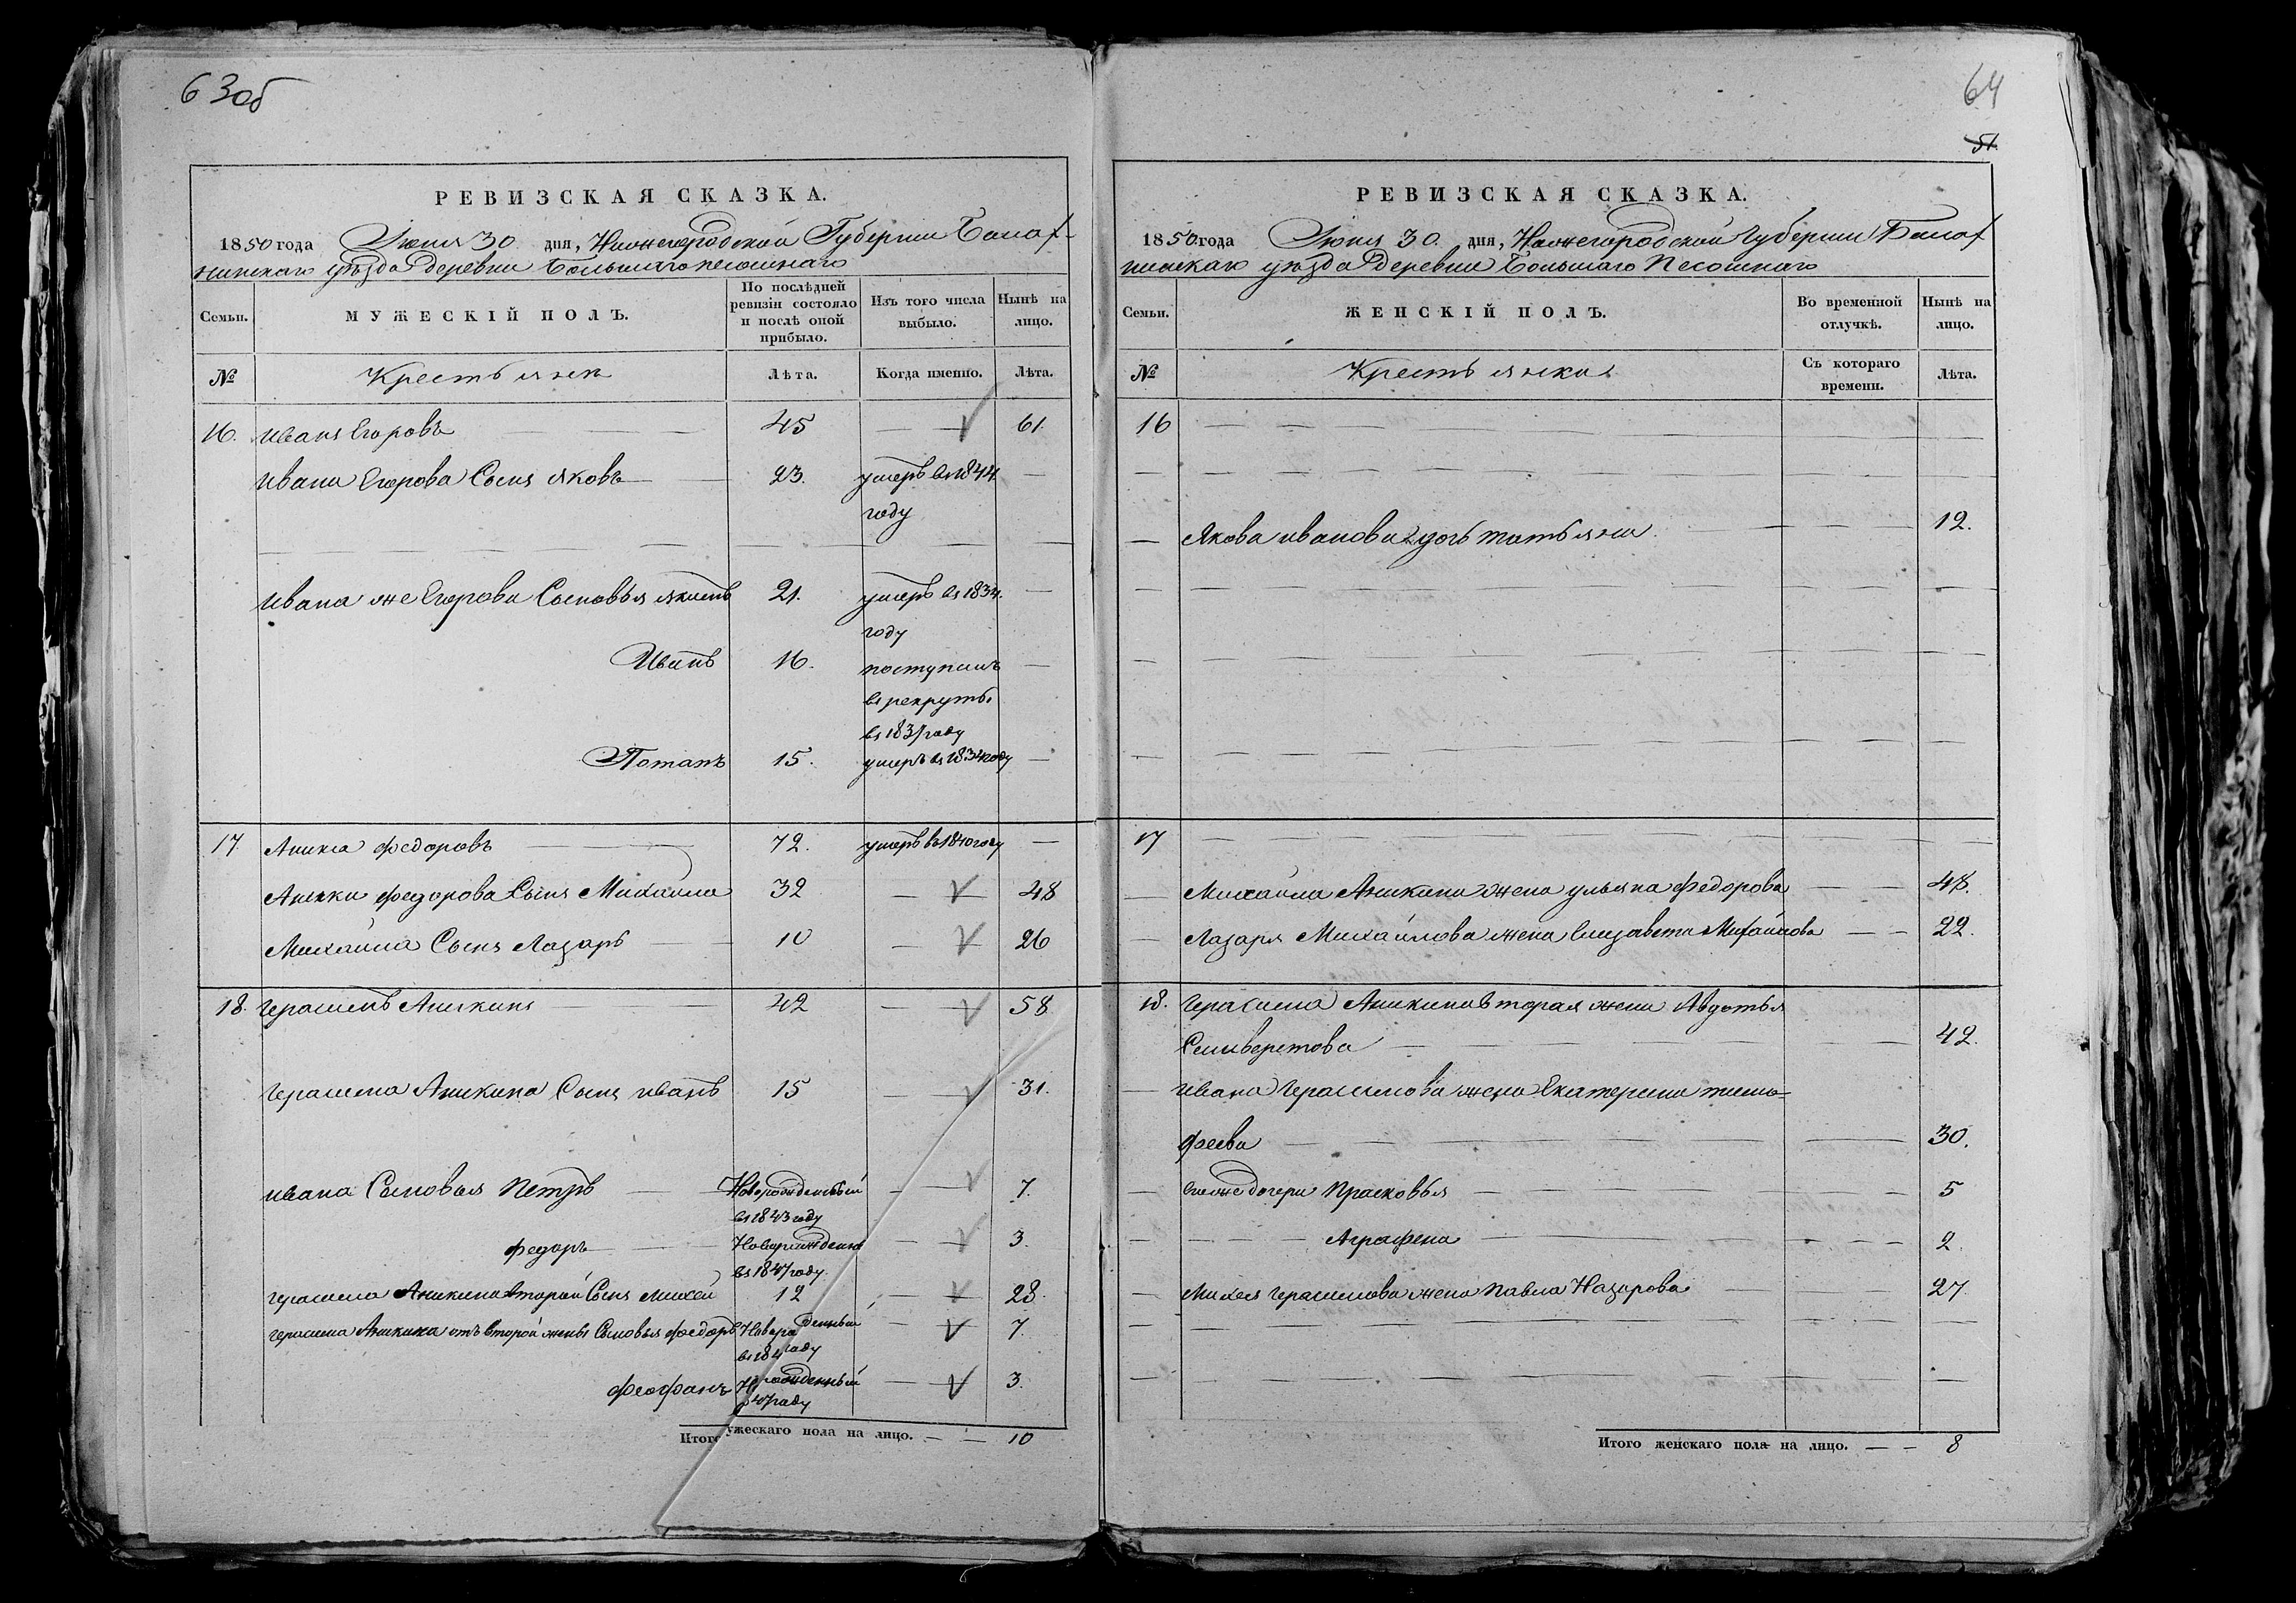 63об
РЕВИЗСКАЯ СКАЗКА.
1850 года Июня 30 дня, Нижегородской Губернии Балах-
нинскаго уѣзда деревни Большаго песошнаго
Семьи.
МУЖЕСКІЙ ПОЛЪ.
По послѣдней ревизіи состояло и послѣ оной прибыло.
Изъ того числа выбыло.
Нынѣ на лицо.
№
Крестьяне
Лѣта.
Когда именно.
Лѣта.
16. Иванъ Егоровъ 45 — 61.
Ивана Егорова Сынъ Яковъ 23. умеръ въ 1844 —
году
Ивана же Егорова Сыновья 21. умеръ въ 1834. —
году
Иванъ 16. поступилъ —
въ рекруты
въ 1837 году
Потапъ 15. умеръ въ 1834 году —
17 Аника Федоровъ 72. умеръ въ 1840 году —
Аники Федорова Сынъ Михаила 32 — 48
Михайла Сынъ Лазарь 10 — 26
18. Герасимъ Аникинъ 42 — 58
Герасима Аникина Сынъ иванъ 15 — 31.
ивана Сыновья Петръ Новорожденный — 7.
въ 1843 году
федоръ Новорожденный — 3.
въ 1847 году
герасима Аникина второй Сынъ Михей 12 — 28.
герасима Аникина отъ второй жены Сыновья Федоръ — 7.
феофанъ — 3.
Итого ужескаго пола на лицо. — — 10
64
51.
РЕВИЗСКАЯ СКАЗКА.
1850 года Июня 30. дня, Нижегородской Губернии Балах
нинскаго уѣзда деревни Большаго Песошнаго
Семьи.
ЖЕНСКІЙ ПОЛЪ.
Во временной отлучкѣ.
Нынѣ на лицо.
№
Крестьянки
Съ котораго времени.
Лѣта.
16 — — —
— Якова иванова дочь татьяна — 12.
17 — — —
— Михайла Аникина жена ульяна Федорова — — 48.
— Лазаря Михайлова жена Елизавета Михайлова — — 22.
18. Герасима Аникина вторая жена Авдотья
Селиверстова — 42.
— ивана Герасимова жена Екатерина тимо-
феева — 30.
— дочери Прасковья — 5
— Аграфена — 2.
— Михея Герасимова жена Павла Назарова — 27
Итого женскаго пола на лицо. — — 8